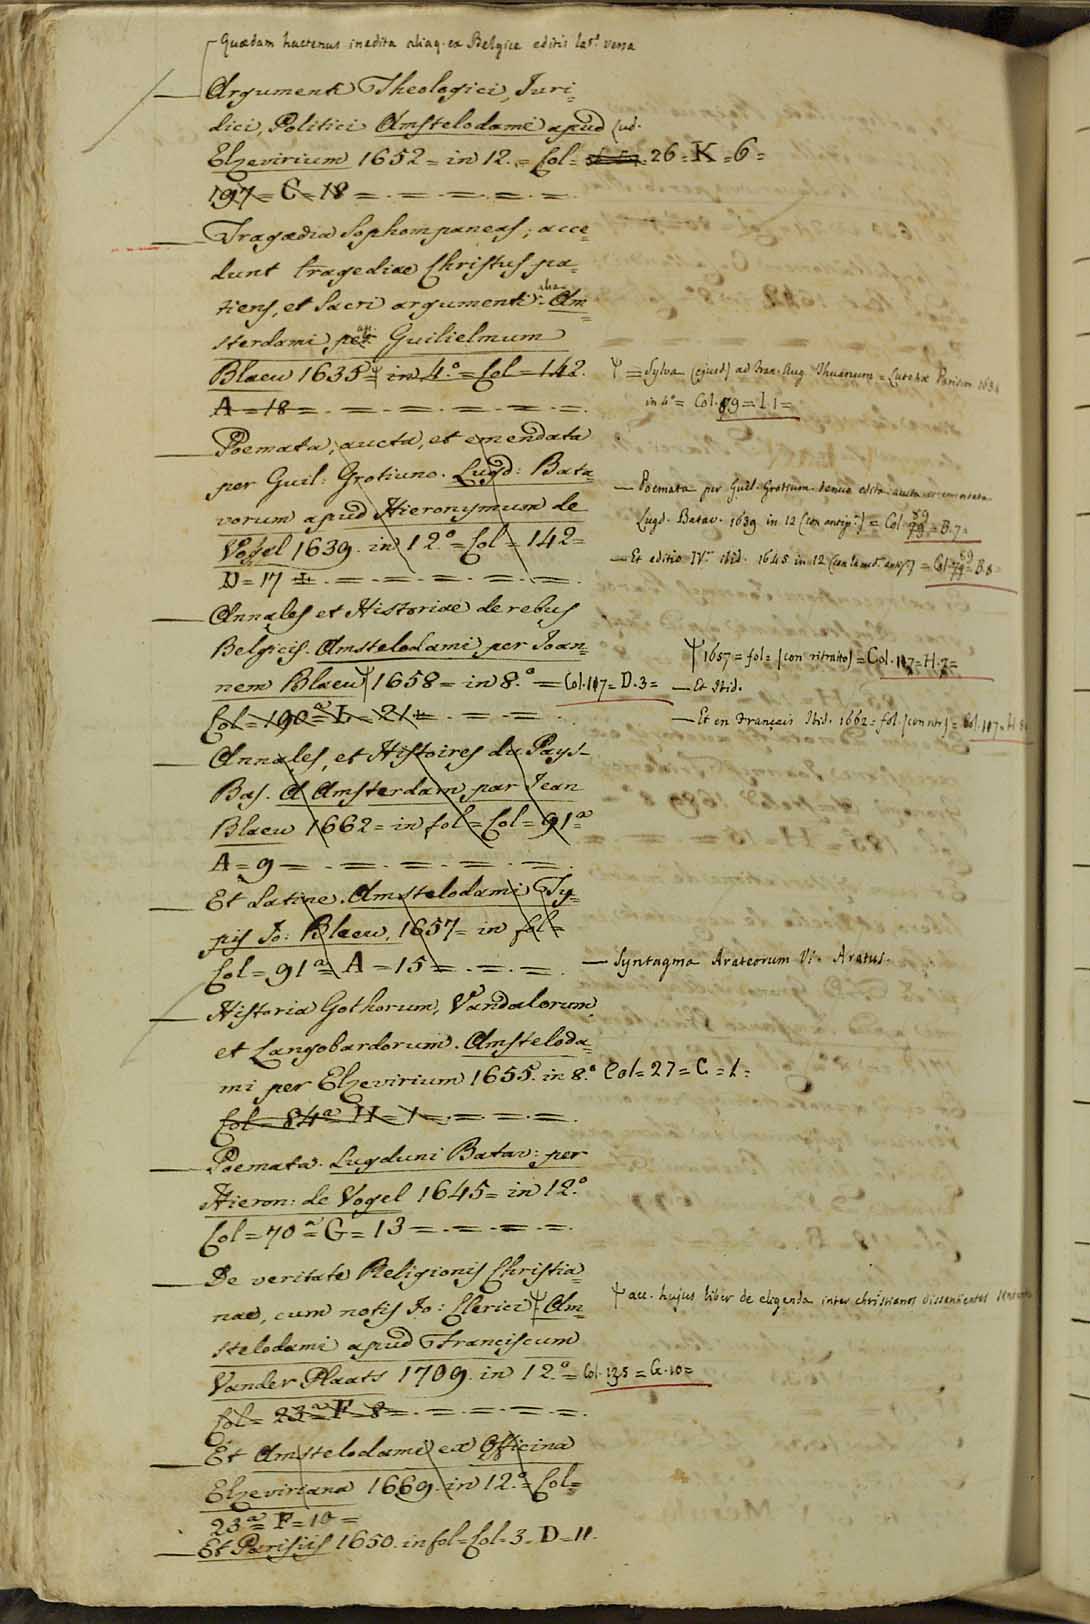 Quædam hactenus inedita aliaq. ex Belgice editis lat.e versa
Argumenti Theologici, Juri-
dici, Politici Amstelodami apud Lud.
Elzevirium 1652 = in 12. = Col = 26 = K = 6 =
197 = C = 18 =
Tragædia Sophompaneas; acce-
dunt tragediæ Christus pa-
tiens, et Sacri argumenti alia. Am-
sterdami ap. Guilielmum
Blaeu 1635 Ψ = in 4.º = Col = 142.
A = 18 =
Ψ = Sylva (ejusd) ad Fran. Aug. Thuanum = Lutetiæ Parisior. 1634
in 4º = Col. 79 = I. 1 =
Poemata, aucta, et emendata
per Guil: Grotium. Lugd: Bata-
vorum apud Hieronymum de
Vogel 1639. in 12.º = Col = 142 =
D = 17 =
— Poemata per Guil. Grotium denuo edita aucta et emendata
Lugd. Batav. 1639 in 12 (con antip.) = Col. 89 = B. 7 =
— Et editio IV.a ibid. 1645 in 12 = Col. 89 = B. 8 =
Annales et Historiæ de rebus
Belgicis. Amstelodami per Joan-
nem Blaeu Ψ 1658 = in 8.º = Col. 117 = D. 3 =
Col = 190a = L = 21 =
Ψ 1657 = fol = (con ritratto) = Col. 117 = H. 7 =
— Et Ibid.
— Et en Français Ibid. 1662 = fol. (con ritr) = Col. 117 = H. 8
Annales, et Histoires du Pays-
Bas. A Amsterdam par Jean
Blaeu 1662 = in fol = Col = 91a =
A = 9 =
Et Latine. Amstelodami Ty-
pis Jo: Blaeu, 1657 = in fol =
Col = 91a = A = 15 =
— Syntagma Arateorum V. Aratus.
Historia Gothorum, Vandalorum,
et Langobardorum. Amsteloda-
mi per Elzevirium 1655. in 8.º Col = 27 = C = 1 =
Col = 84a H = 1 =
Poemata. Lugduni Batav: per
Hieron: de Vogel 1645 = in 12.º
Col = 70a = G = 13 =
De veritate Religionis Christia-
næ, cum notis Jo: Clerici Ψ Am-
stelodami apud Franciscum
Vander Plaats 1709. in 12.º = Col. 135 = G. 10 =
Col = 23a = F = 8 =
Ψ acc. hujus liber de eligenda inter christianos dissentientes sententia
Et Amstelodami ex Officina
Elzeviriana 1669. in 12.º = Col =
23a = F = 10 =
Et Parisiis 1650. in fol = Col = 3 = D = 11.